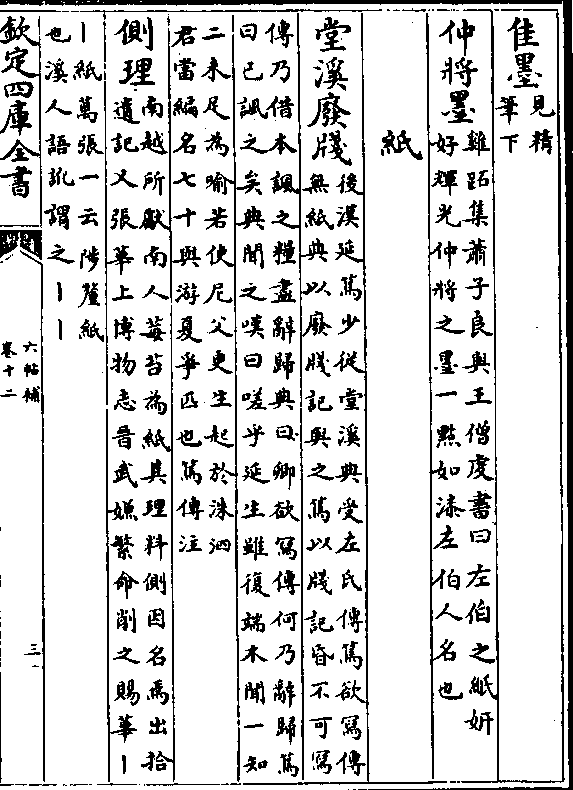 佳墨見精
筆下
仲將墨雞跖集蕭子良與王僧虔書曰左伯之紙妍
好輝光仲將之墨一㸃如漆左伯人名也
紙
堂溪廢牋後漢延篤少從堂溪典受左氏傳篤欲寫傳
無紙典以廢牋記與之篤以牋記昏不可寫
傳乃借本諷之糧盡辭歸典曰卿欲寫傳何乃辭歸篤
曰已諷之矣典聞之嘆曰嗟乎延生雖復端木聞一知
二未足為喻若使尼父更生起於洙泗
君當編名七十與游夏爭匹也篤傳注
側理南越所獻南人莓苔為紙其理料側因名焉出拾
遺記又張華上博物志晋武嫌繁命削之賜華丨
丨紙萬張一云陟釐紙
也溪人語訛謂之丨丨
欽定四庫全書
六帖補
卷十二
三